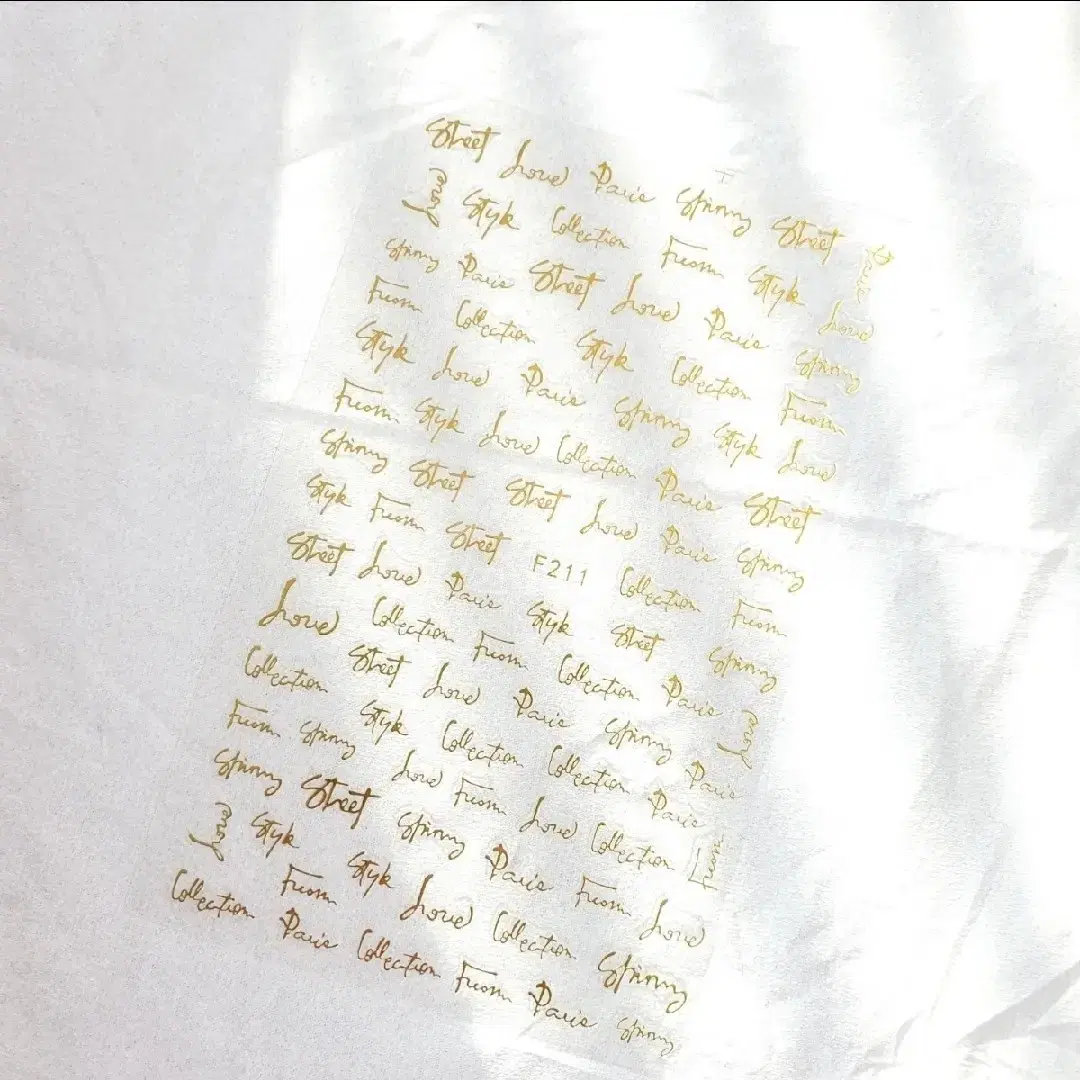 Street Love Paris Spring Street Paris
Love Style Collection From Style Love
Spring Paris Street Love Paris Spring
From Collection Style Collection From
Style Love Paris Spring Style Love
From Style Love Collection Paris Street
Spring Street Street Love Paris Spring
Style From Street F211 Collection From
Street Love Paris Style Street Spring
Love Collection From Collection Paris Love
Collection Street Love Paris Spring Paris
Style Collection Collection Paris
From Spring Love From Love Collection From
Spring Street Spring Paris From Love
Love Style From Style Love Collection Spring
Collection Paris Collection From Paris Spring